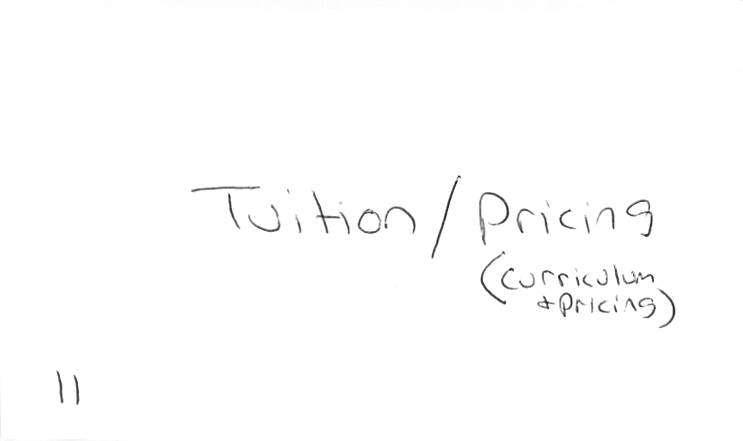 Tuition/Pricing
(Curriculum
+Pricing)
11